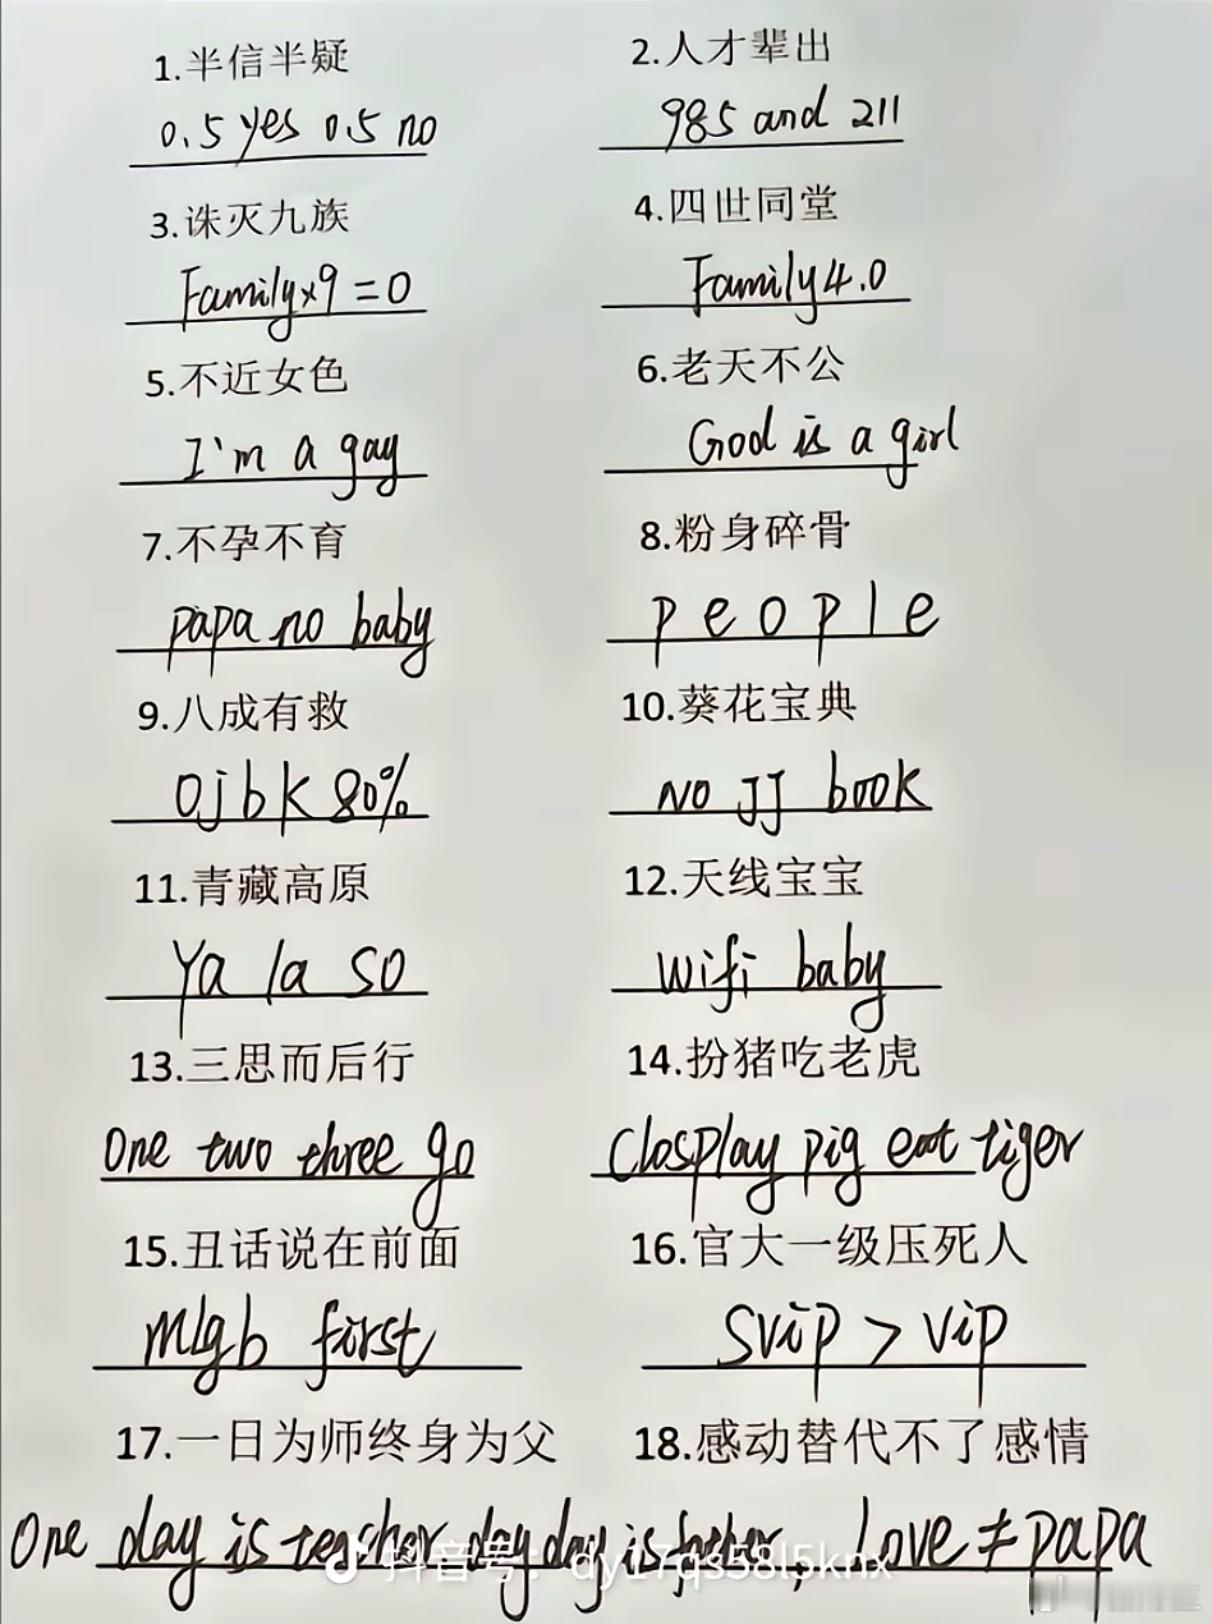 1.半信半疑
2.人才辈出
0.5 yes 0.5 no
985 and 211
3.诛灭九族
4.四世同堂
Family×9=0
Family4.0
5.不近女色
6.老天不公
I'm a gay
God is a girl
7.不孕不育
8.粉身碎骨
papa no baby
p e o p l e
9.八成有救
10.葵花宝典
Ojbk 80%
NO JJ book
11.青藏高原
12.天线宝宝
Ya la so
wifi baby
13.三思而后行
14.扮猪吃老虎
One two three go
Closplay pig eat tiger
15.丑话说在前面
16.官大一级压死人
mlgb first
svip > vip
17.一日为师终身为父
18.感动替代不了感情
One day is teacher day day is father,
Love ≠ papa
抖音号: dy17qs58l5knx